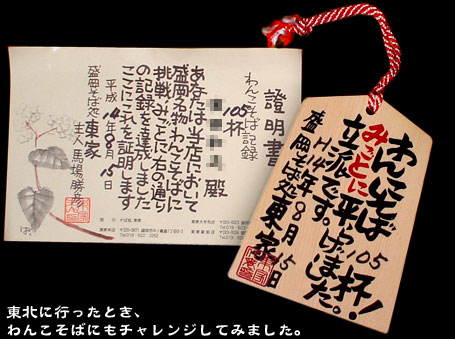 證明書
わんこそば記録
105杯
殿
あなたは当店において
盛岡名物わんこそばに
挑戦しみごとに右の通り
の記録を達成しました
ここにこれを証明します
平成14年8月15日
盛岡そば処 東家
主人 馬場勝彦
わんこそば
みごとに105杯!
平らげました。
立派です。
H14年8月15日
盛岡そば処東家
東北に行ったとき、
わんこそばにもチャレンジしてみました。